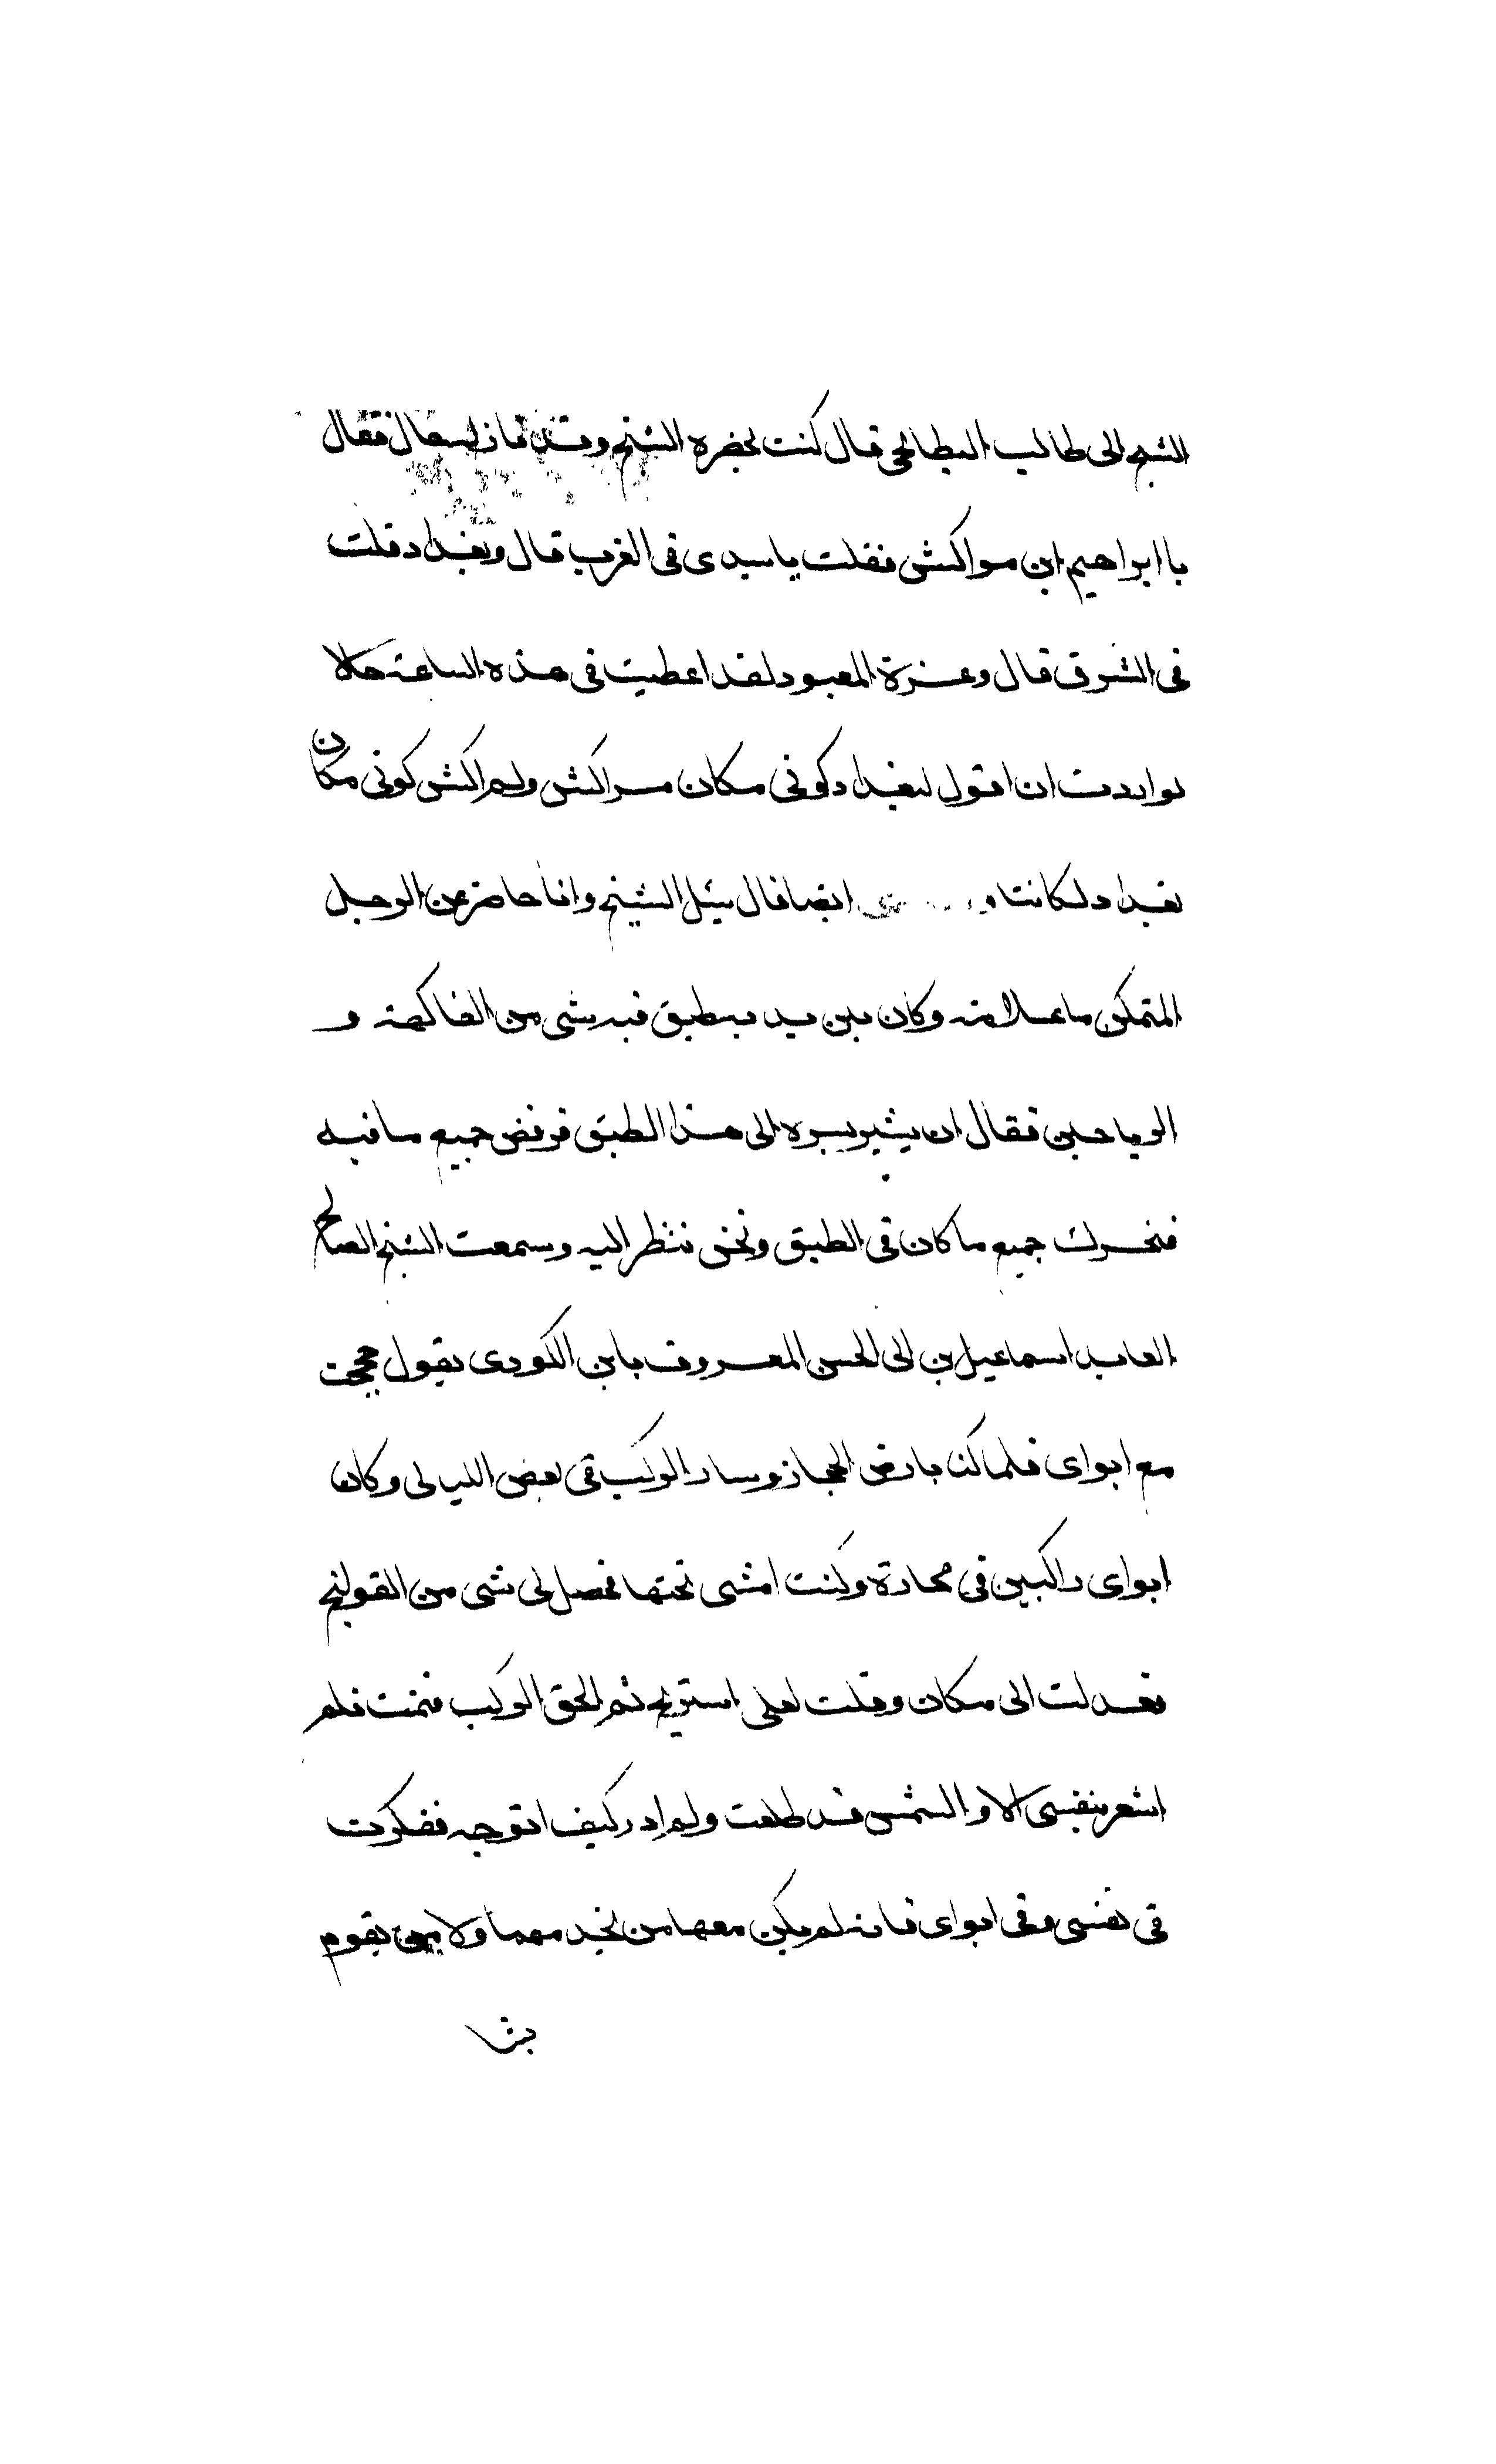 الشيخ ابى طالب البطائحى قال كنت بحضره الشيخ وقد فقال
يا ابراهيم اين مراكش فقلت ياسيدى فى الغرب قال وبغداد قلت
فى الشرق قال وعزة المعبود لقد اعطيت فى هذه الساعة حالا
لو اردت ان اقول لبغداد كونى مكان مراكش ولمراكش كونى مكان
بغداد لكانتا ايضا قال سئل الشيخ وانا حاضر عن الرجل
المتمكن ما علامته وكان بين يديه طبق فيه شى من الفاكهة و
الرياحين فقال ان يشير بسره الى هذا الطبق فرقض جميع ما فيه
فتحرك جميع ما كان فى الطبق ونحن ننظر اليه وسمعت الشيخ الصالح
العابد اسماعيل بن ابى الحسن المعروف بابن الكوردى يقول حججت
مع ابواى فلما كنا بارض الحجاز وسار الركب فى بعض الليالى وكان
ابواى راكبين فى محارة وكنت امشى تحتها فحصل لى شى من القولنج
فعدلت الى مكان وقلت لعلى استريح ثم الحق الركب فنمت فلم
اشعر بنفسى الا والشمس قد طلعت ولم ادر كيف اتوجه ففكرت
فى نفسى وفى ابواى فانه لم يكن معهما من يخدمهما ولا من يقوم
بشا